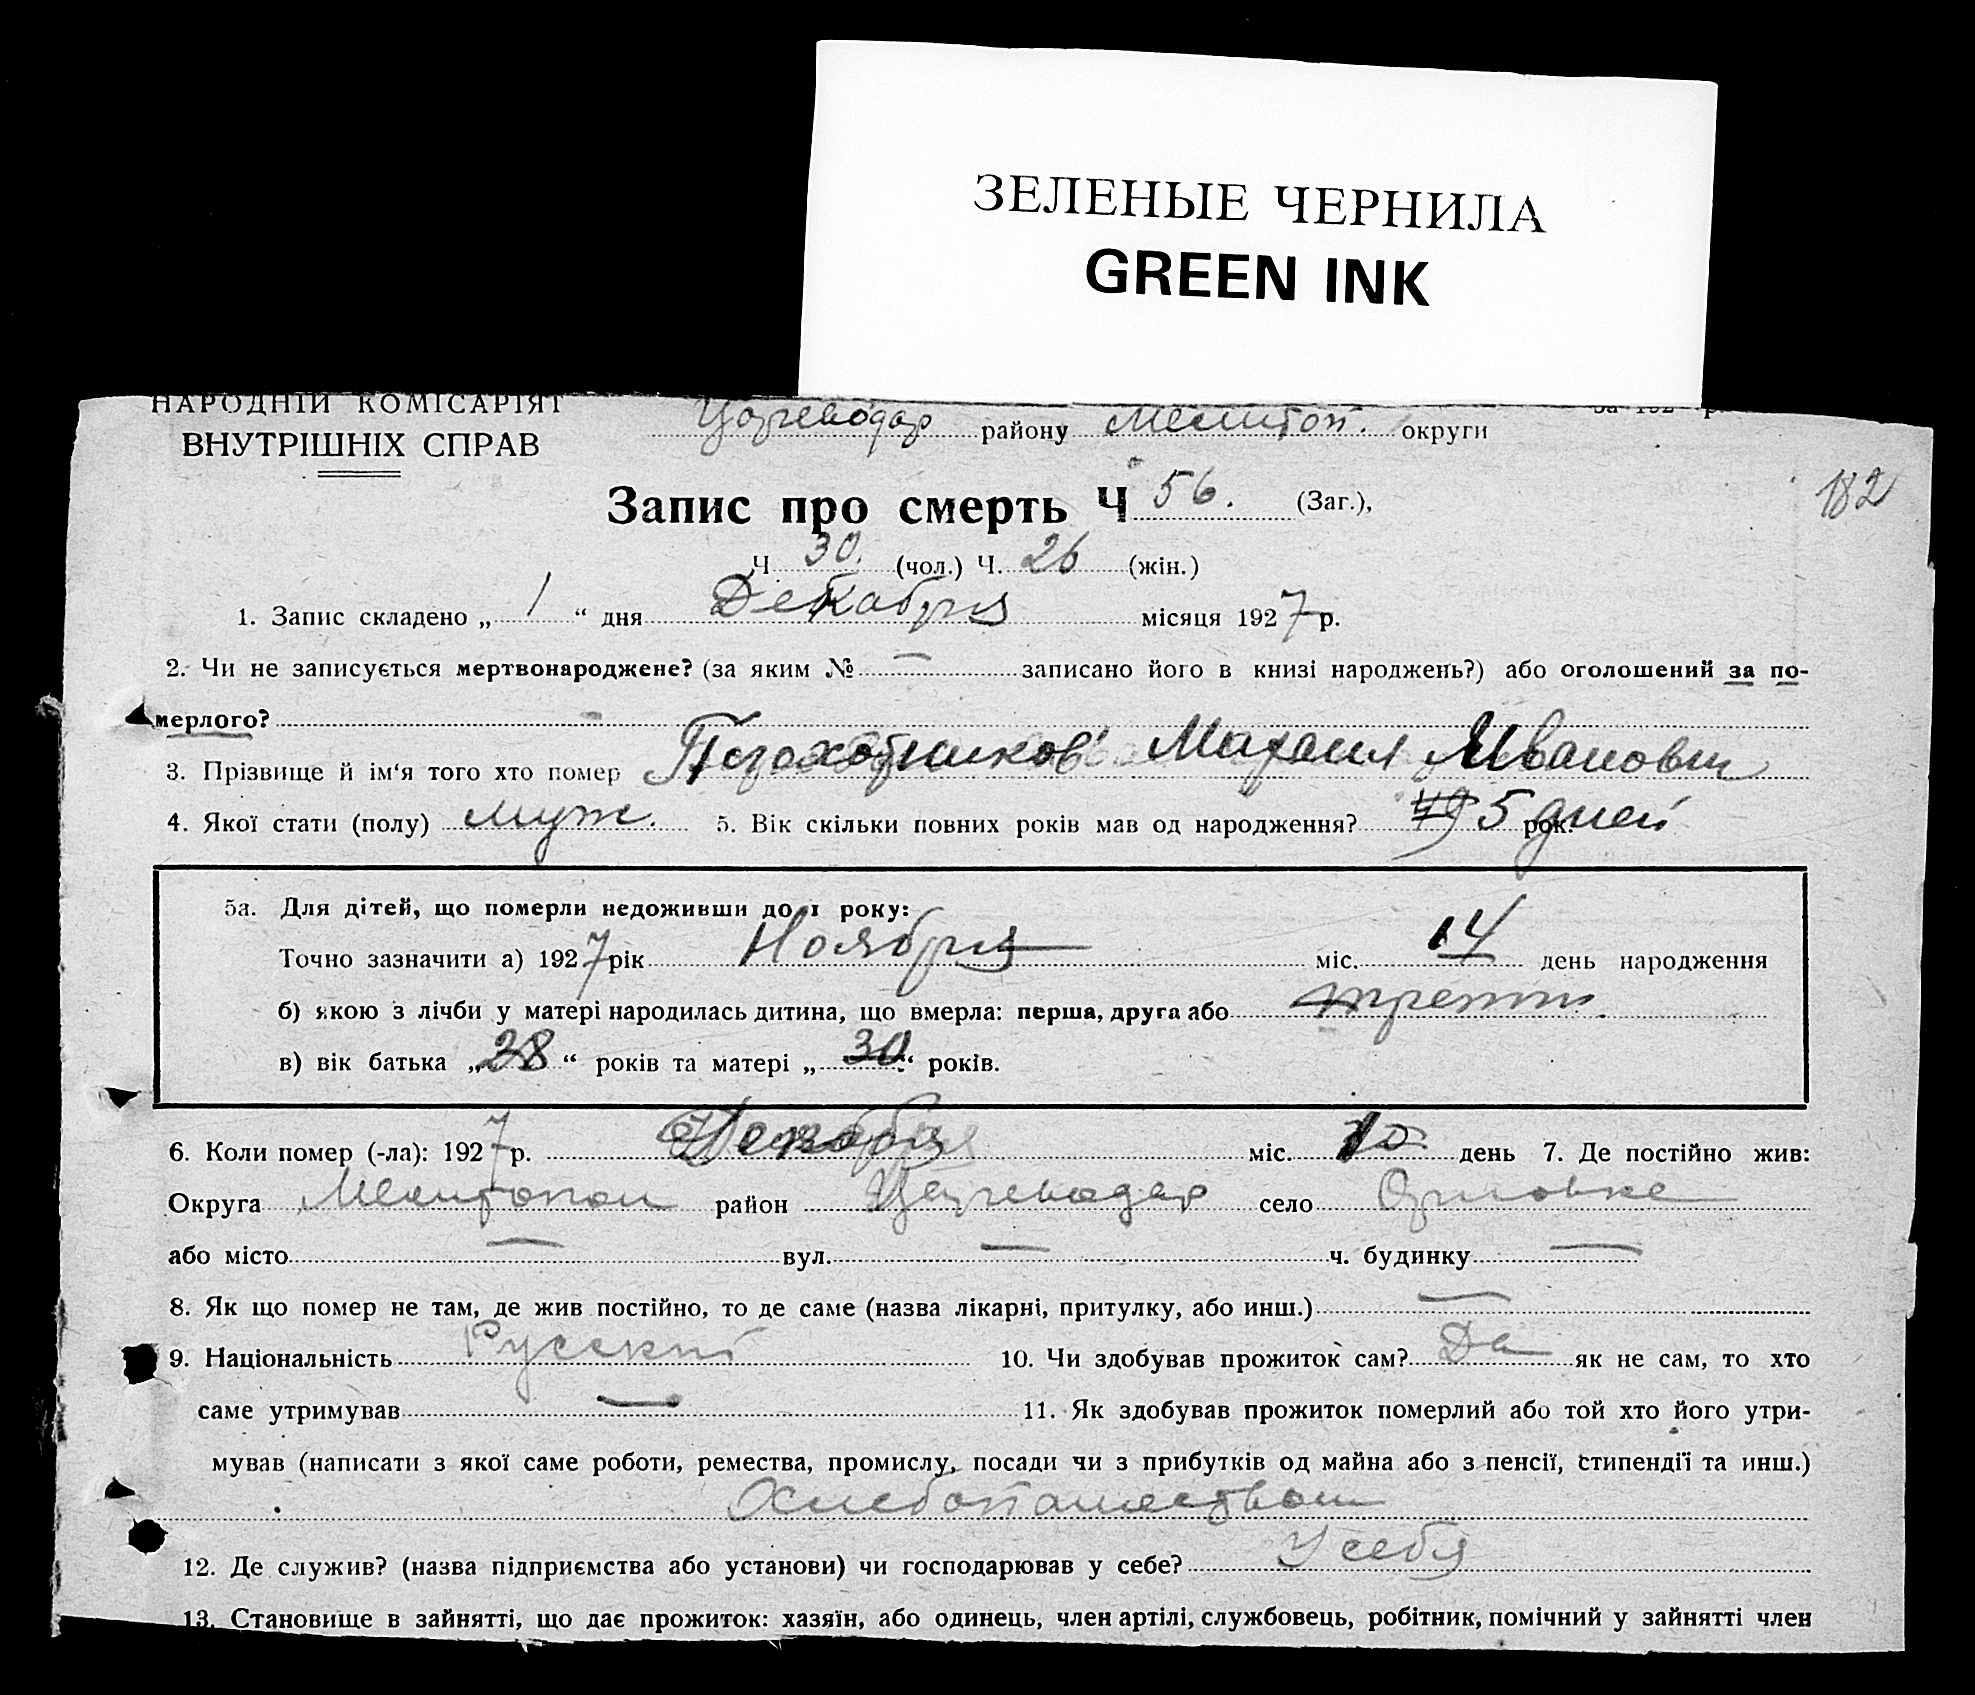 ЗЕЛЕНЫЕ ЧЕРНИЛА
GREEN INK
НАРОДНІЙ КОМІСАРІЯТ
ВНУТРІШНІХ СПРАВ
району Мелитоп. округи
182
Запис про смерть Ч 56. (Заг.),
Ч 30. (чол.) Ч. 26 (жін.)
1. Запис складено „ 1 “ дня Декабря місяця 1927 р.
2. Чи не записується мертвонароджене? (за яким № — записано його в книзі народжень?) або оголошений за по-
мерлого?
3. Прізвище й ім‘я того хто помер Михаил Иванович
4. Якої стати (полу) муж. 5. Вік скільки повних років мав од народження? 5 дней рок.
5а. Для дітей, що померли недоживши до 1 року:
Точно зазначити а) 1927 рік Ноября міс. 14 день народження
б) якою з лічби у матері народилась дитина, що вмерла: перша, друга або
в) вік батька „28“ років та матері „30“ років.
6. Коли помер (-ла): 1927 р. міс. день 7. Де постійно жив:
Округа Мелитопол район село Орловке
або місто — вул. — ч. будинку —
8. Як що помер не там, де жив постійно, то де саме (назва лікарні, притулку, або инш.) —
9. Національність Русский 10. Чи здобував прожиток сам? Да як не сам, то хто
саме утримував — 11. Як здобував прожиток померлий або той хто його утри-
мував (написати з якої саме роботи, ремества, промислу, посади чи з прибутків од майна або з пенсії, стипендії та инш.)
Хлебопашеством
12. Де служив? (назва підприємства або установи) чи господарював у себе? У себя
13. Становище в зайнятті, що дає прожиток: хазяїн, або одинець, член артілі, службовець, робітник, помічний у зайнятті член